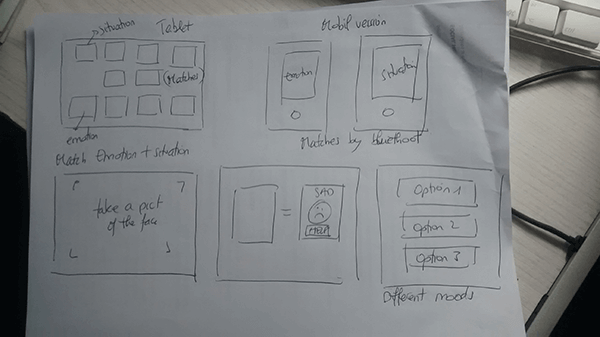 situation
Tablet
(Matches)
emotion
Match Emotion + situation
Mobil version
emotion
situation
Matches by bluethoot
take a pict
of the face
=
SAD
HELP
Option 1
Option 2
Option 3
Different moods